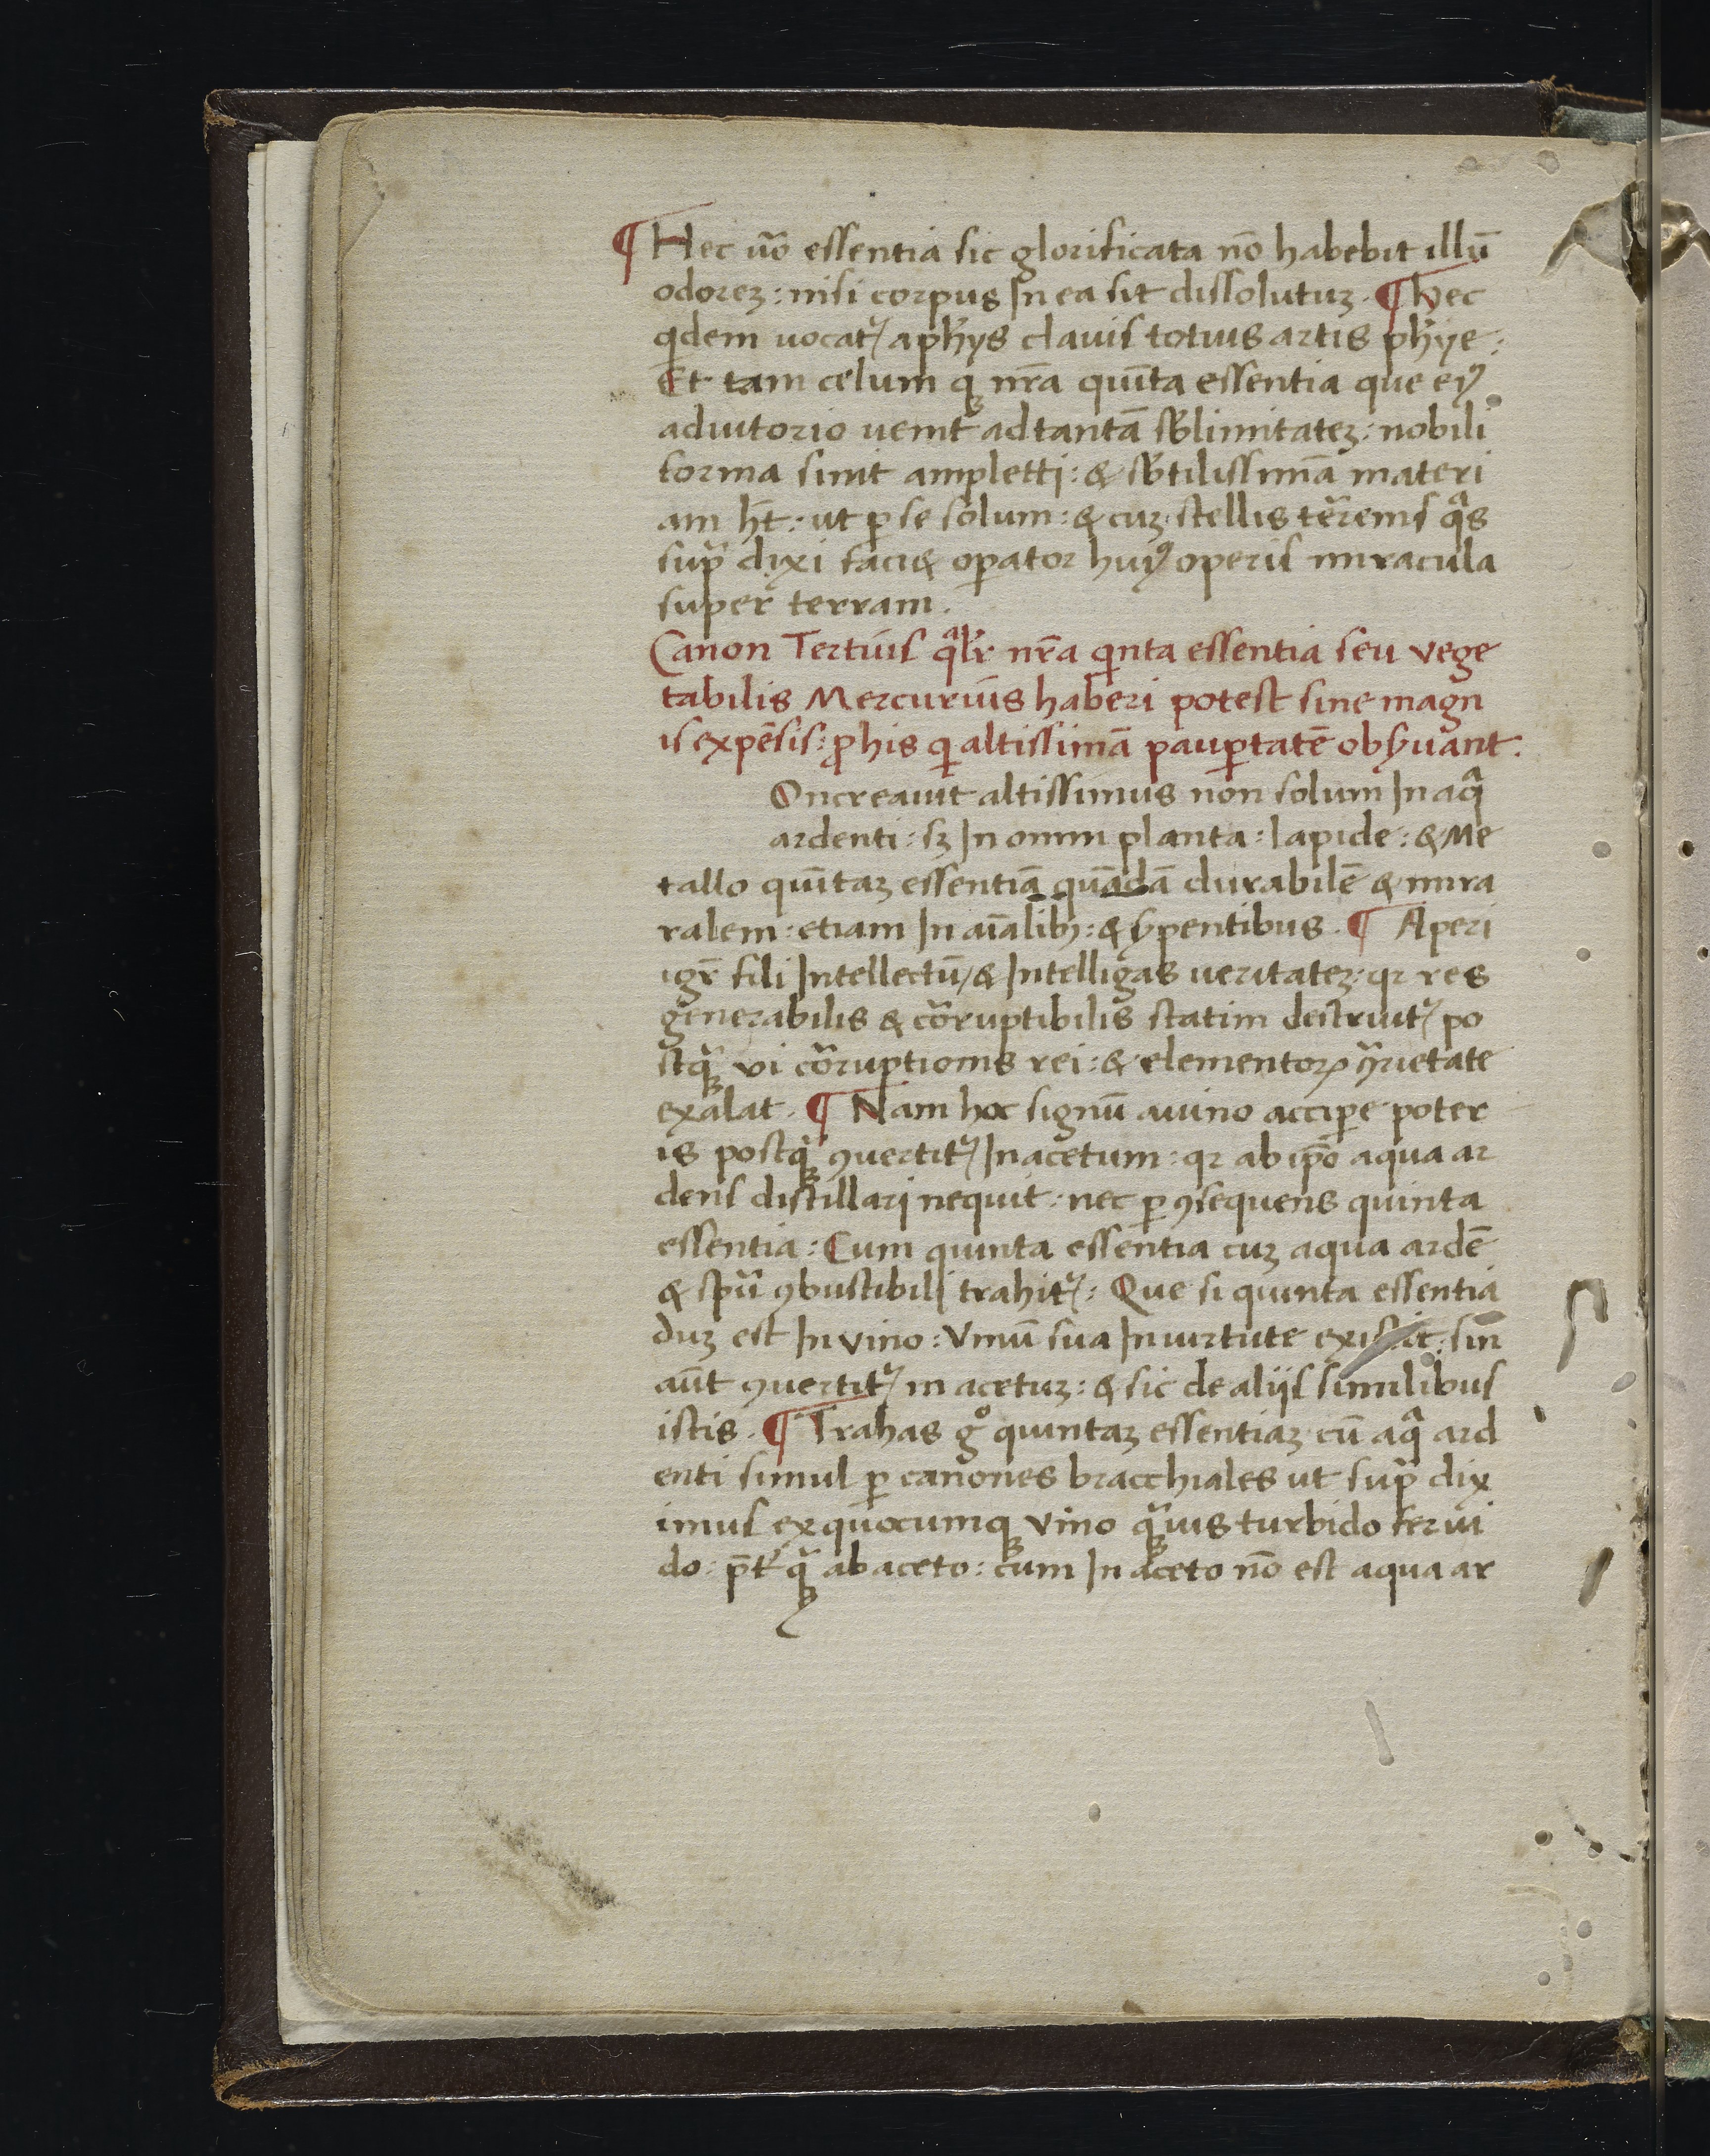 ¶ Hec uō essentia sic glorificata nō habebit illū
odoreꝫ: nisi corpus In ea sit dissolutuꝫ. ¶ Hec
qdem uocat᷑ a ph̄ys clauis totius artis ph̄ye:
Et tam celum qꝫ nr̄a quīta essentia que eiꝰ
adiutorio uenit ad tantā sb̄limitateꝫ: nobili
forma sinit ampletti: & sb̄tilissimā materi
am ht̄: ut ꝑ se solum: & cuꝫ stellis terrenis qͣs
supͣ dixi faci& oꝑator huiꝰ operis miracula
super terram.
Canon Tertius qͣlr̄ nr̄a qͥnta essentia seu vege
tabilis Mercurius haberi potest sine magn
is expēsis: ꝓ his qͥ altissimā pauꝑtatē obẜuant.
On creauit altissimus non solum In aqͣ
ardenti: sꝫ In omni planta: lapide: & Me
tallo quītaꝫ essentiā quādā durabilē & mira
ralem: etiam In aīalibꝫ: & ẜpentibus. ¶ Aperi
igr̄ fili Intellectū, & Intelligas ueritateꝫ: qr res
generabilis & corruptibilis statim destruit᷑ po
stqͣꝫ vi corruptionis rei: & elementoꝝ ꝯrietate
exalat. ¶ Nam hoc signū a uino acciꝑe poter
is postqͣꝫ ꝯuertit᷑ In acetum: qr ab ip̄o aqua ar
dens distillari nequit: nec ꝑ ꝯsequens quinta
essentia: Cum quinta essentia cuꝫ aqua ardē
& spū ꝯbustibili trahit᷑: Que si quinta essentia
duꝫ est In vino: Vinū sua In uirtute existit: sin
aūt ꝯuertit᷑ in acetuꝫ: & sic de alijs similibus
istis. ¶ Trahas gͦ quintaꝫ essentiaꝫ cū aqͣ ard
enti simul ꝑ canones bracchiales ut supͣ dix
imus ex quocumqꝫ vino qͣꝫuis turbido ferui
do: p̄t̄qͣꝫ ab aceto: cum In aceto nō est aqua ar